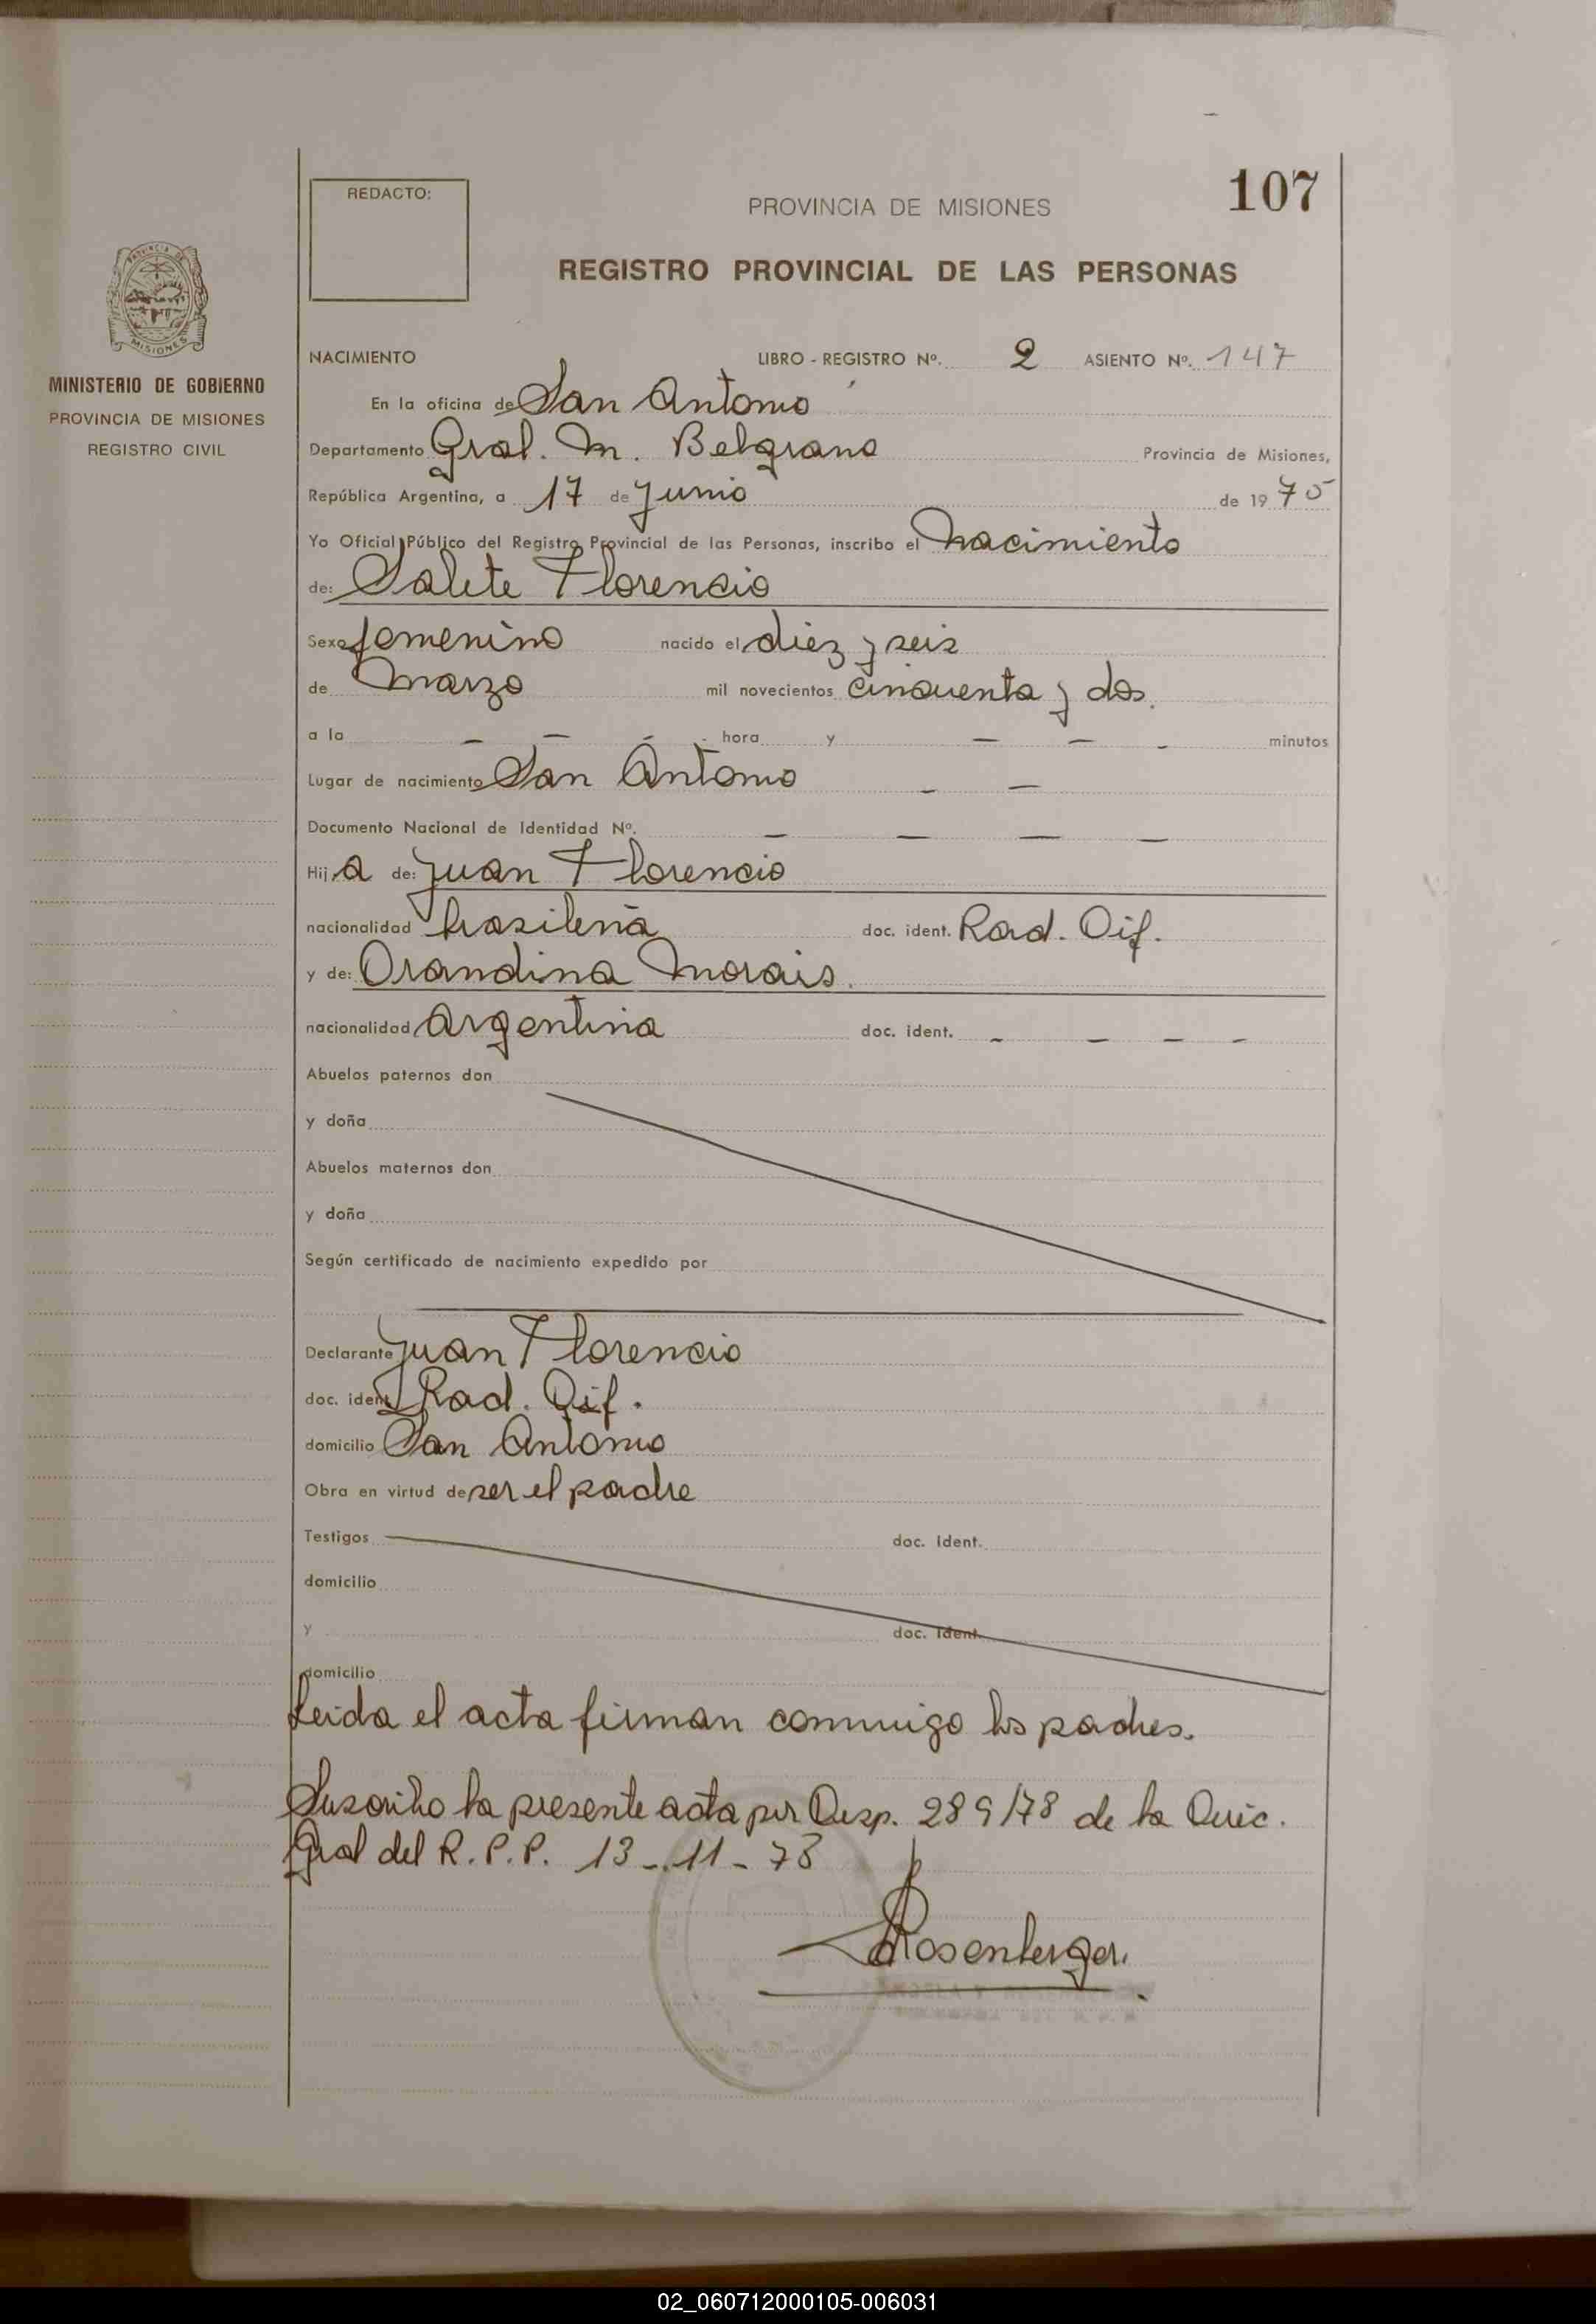 107
REDACTO:
PROVINCIA DE MISIONES
REGISTRO PROVINCIAL DE LAS PERSONAS
MISIONES
MINISTERIO DE GOBIERNO
PROVINCIA DE MISIONES
REGISTRO CIVIL
NACIMIENTO LIBRO - REGISTRO Nº. 2 ASIENTO Nº. 147
En la oficina de San Antonio
Departamento Gral. M. Belgrano Provincia de Misiones,
República Argentina, a 17 de Junio de 1975
Yo Oficial Público del Registro Provincial de las Personas, inscribo el nacimiento
de: Salete Florencio
Sexo femenino nacido el diez y seis
de Marzo mil novecientos cincuenta y dos.
a la - - - hora y - - - minutos
Lugar de nacimiento San Antonio - -
Documento Nacional de Identidad Nº. - - - -
Hija de: Juan Florencio
nacionalidad brasileña doc. ident. Rad. Dif.
y de: Orandina Morais.
nacionalidad Argentina doc. ident. - - - -
Abuelos paternos don
y doña
Abuelos maternos don
y doña
Según certificado de nacimiento expedido por
Declarante Juan Florencio
doc. ident. Rad. Dif.
domicilio San Antonio
Obra en virtud de ser el padre
Testigos doc. Ident.
domicilio
y doc. Ident.
domicilio
Leida el acta firman conmigo los padres.
Suscribo la presente acta por Disp. 289/78 de la Direc.
Gral del R.P.P. 13-11-78
Rosenberger.
02_060712000105-006031